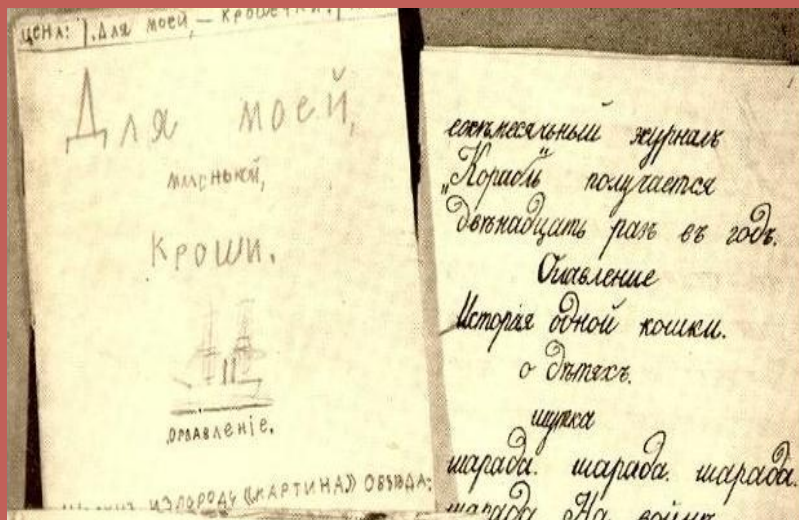 ЦЕНА: Для моей, — крошечки.
Для моей,
маленькой,
кроши.
оглавленіе.
ИЗЛОРОДУ «КАРТИНА» ОБѢДА:
ежемесячный журналъ
„Корабль" получается
двѣнадцать разъ въ годъ.
Оглавление
Исторія одной кошки.
о дѣтяхъ.
шутка
шарада. шарада. шарада.
шарада На войнѣ